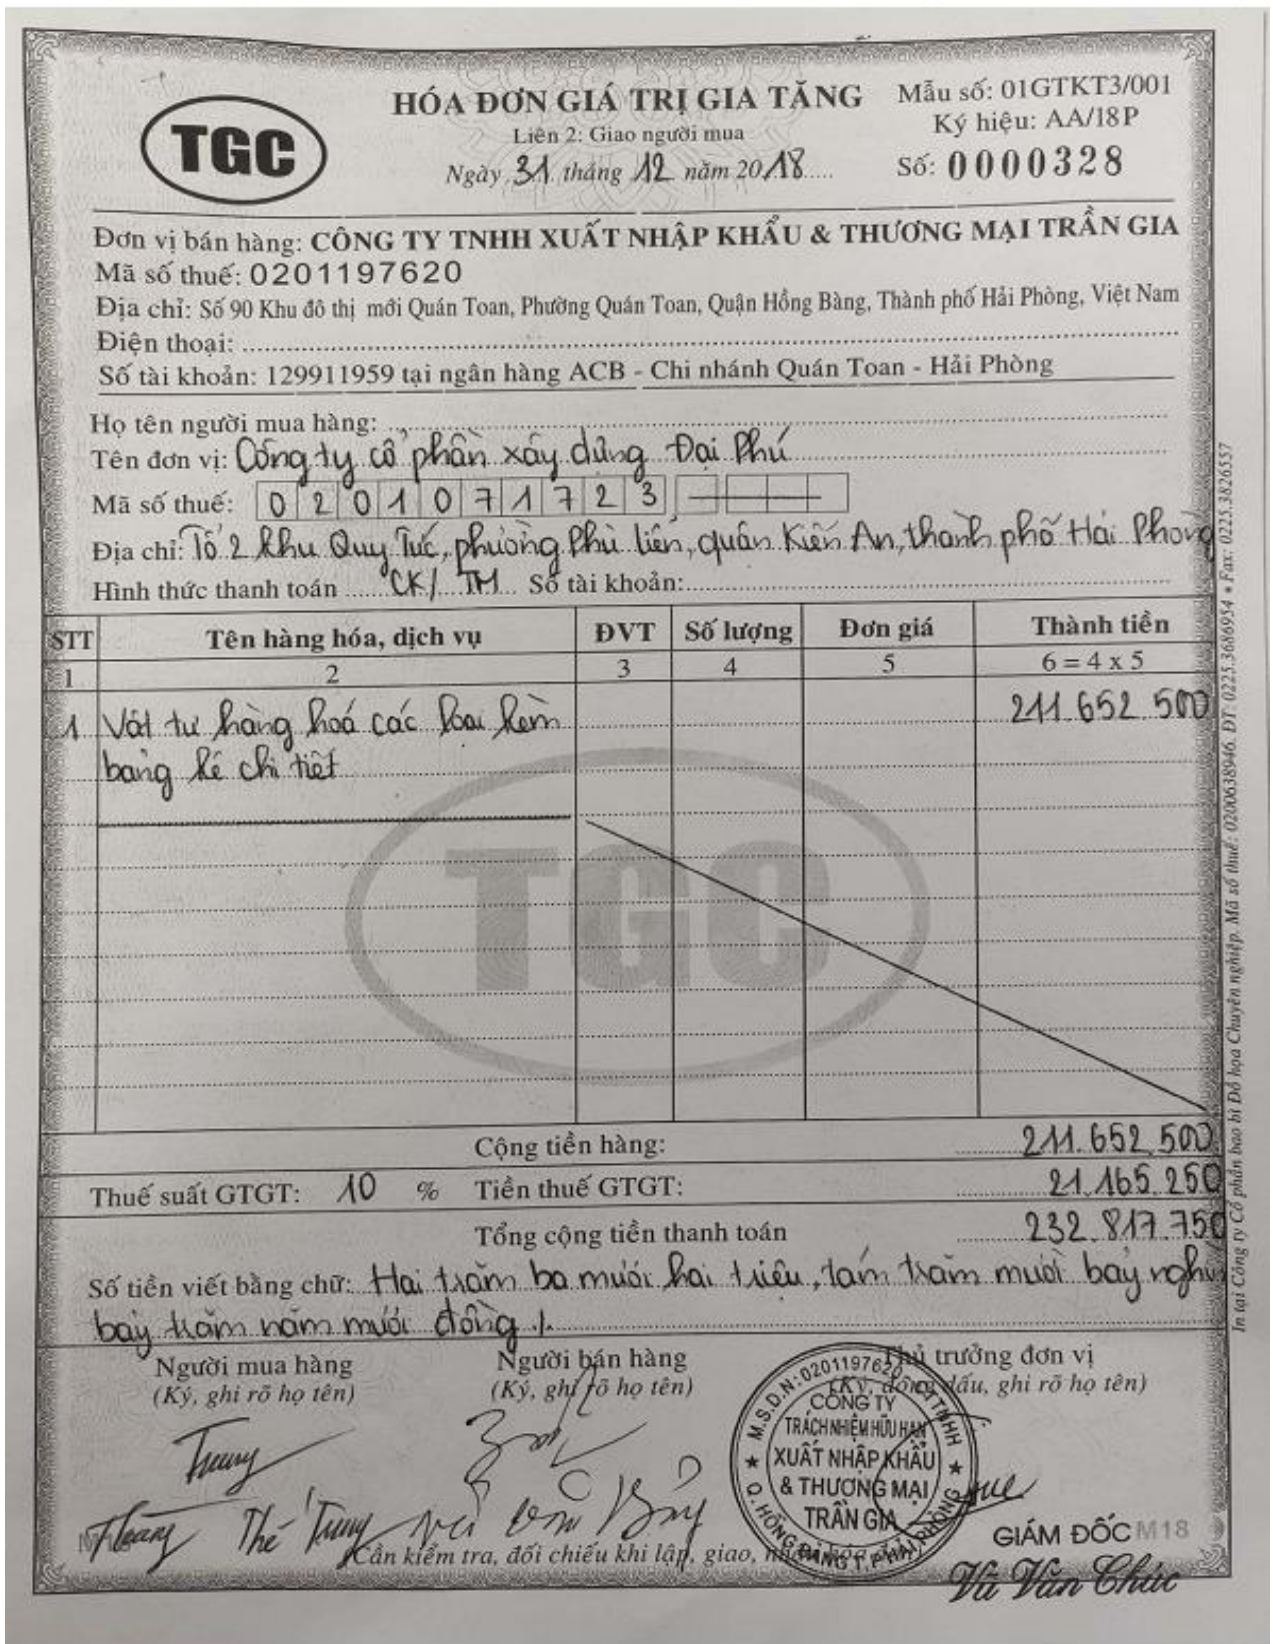 TGC
HÓA ĐƠN GIÁ TRỊ GIA TĂNG
Liên 2: Giao người mua
Ngày 31 tháng 12 năm 2018
Mẫu số: 01GTKT3/001
Ký hiệu: AA/18P
Số: 0000328
Đơn vị bán hàng: CÔNG TY TNHH XUẤT NHẬP KHẨU & THƯƠNG MẠI TRẦN GIA
Mã số thuế: 0201197620
Địa chỉ: Số 90 Khu đô thị mới Quán Toan, Phường Quán Toan, Quận Hồng Bàng, Thành phố Hải Phòng, Việt Nam
Điện thoại:
Số tài khoản: 129911959 tại ngân hàng ACB - Chi nhánh Quán Toan - Hải Phòng
Họ tên người mua hàng:
Tên đơn vị: Công ty cổ phần xây dựng Đại Phú
Mã số thuế: 0201071723
Địa chỉ: Tổ 2 khu Quy Tức, phường Phù Liễn, quận Kiến An, thành phố Hải Phòng
Hình thức thanh toán CK/ TM Số tài khoản:
STT Tên hàng hóa, dịch vụ ĐVT Số lượng Đơn giá Thành tiền
1 2 3 4 5 6 = 4 x 5
1 Vật tư hàng hoá các loại kèm 211.652.500
bảng kê chi tiết
TGC
Cộng tiền hàng: 211.652.500
Thuế suất GTGT: 10 % Tiền thuế GTGT: 21.165.250
Tổng cộng tiền thanh toán 232.817.750
Số tiền viết bằng chữ: Hai trăm ba mươi hai triệu, tám trăm mười bảy nghìn
bảy trăm năm mươi đồng ./.
Người mua hàng Người bán hàng Thủ trưởng đơn vị
(Ký, ghi rõ họ tên) (Ký, ghi rõ họ tên) (Ký, đóng dấu, ghi rõ họ tên)
M.S.D.N: 0201197620
CÔNG TY
TRÁCH NHIỆM HỮU HẠN
XUẤT NHẬP KHẨU
& THƯƠNG MẠI
TRẦN GIA
Trung
Hoàng Thế Trung
GIÁM ĐỐC M18
(Cần kiểm tra, đối chiếu khi lập, giao, nhận hóa đơn)
Vũ Văn Chúc
In tại Công ty Cổ phần bao bì Đồ họa Chuyên nghiệp. Mã số thuế: 0200638946. ĐT: 0225.3686954 * Fax: 0225.3826557